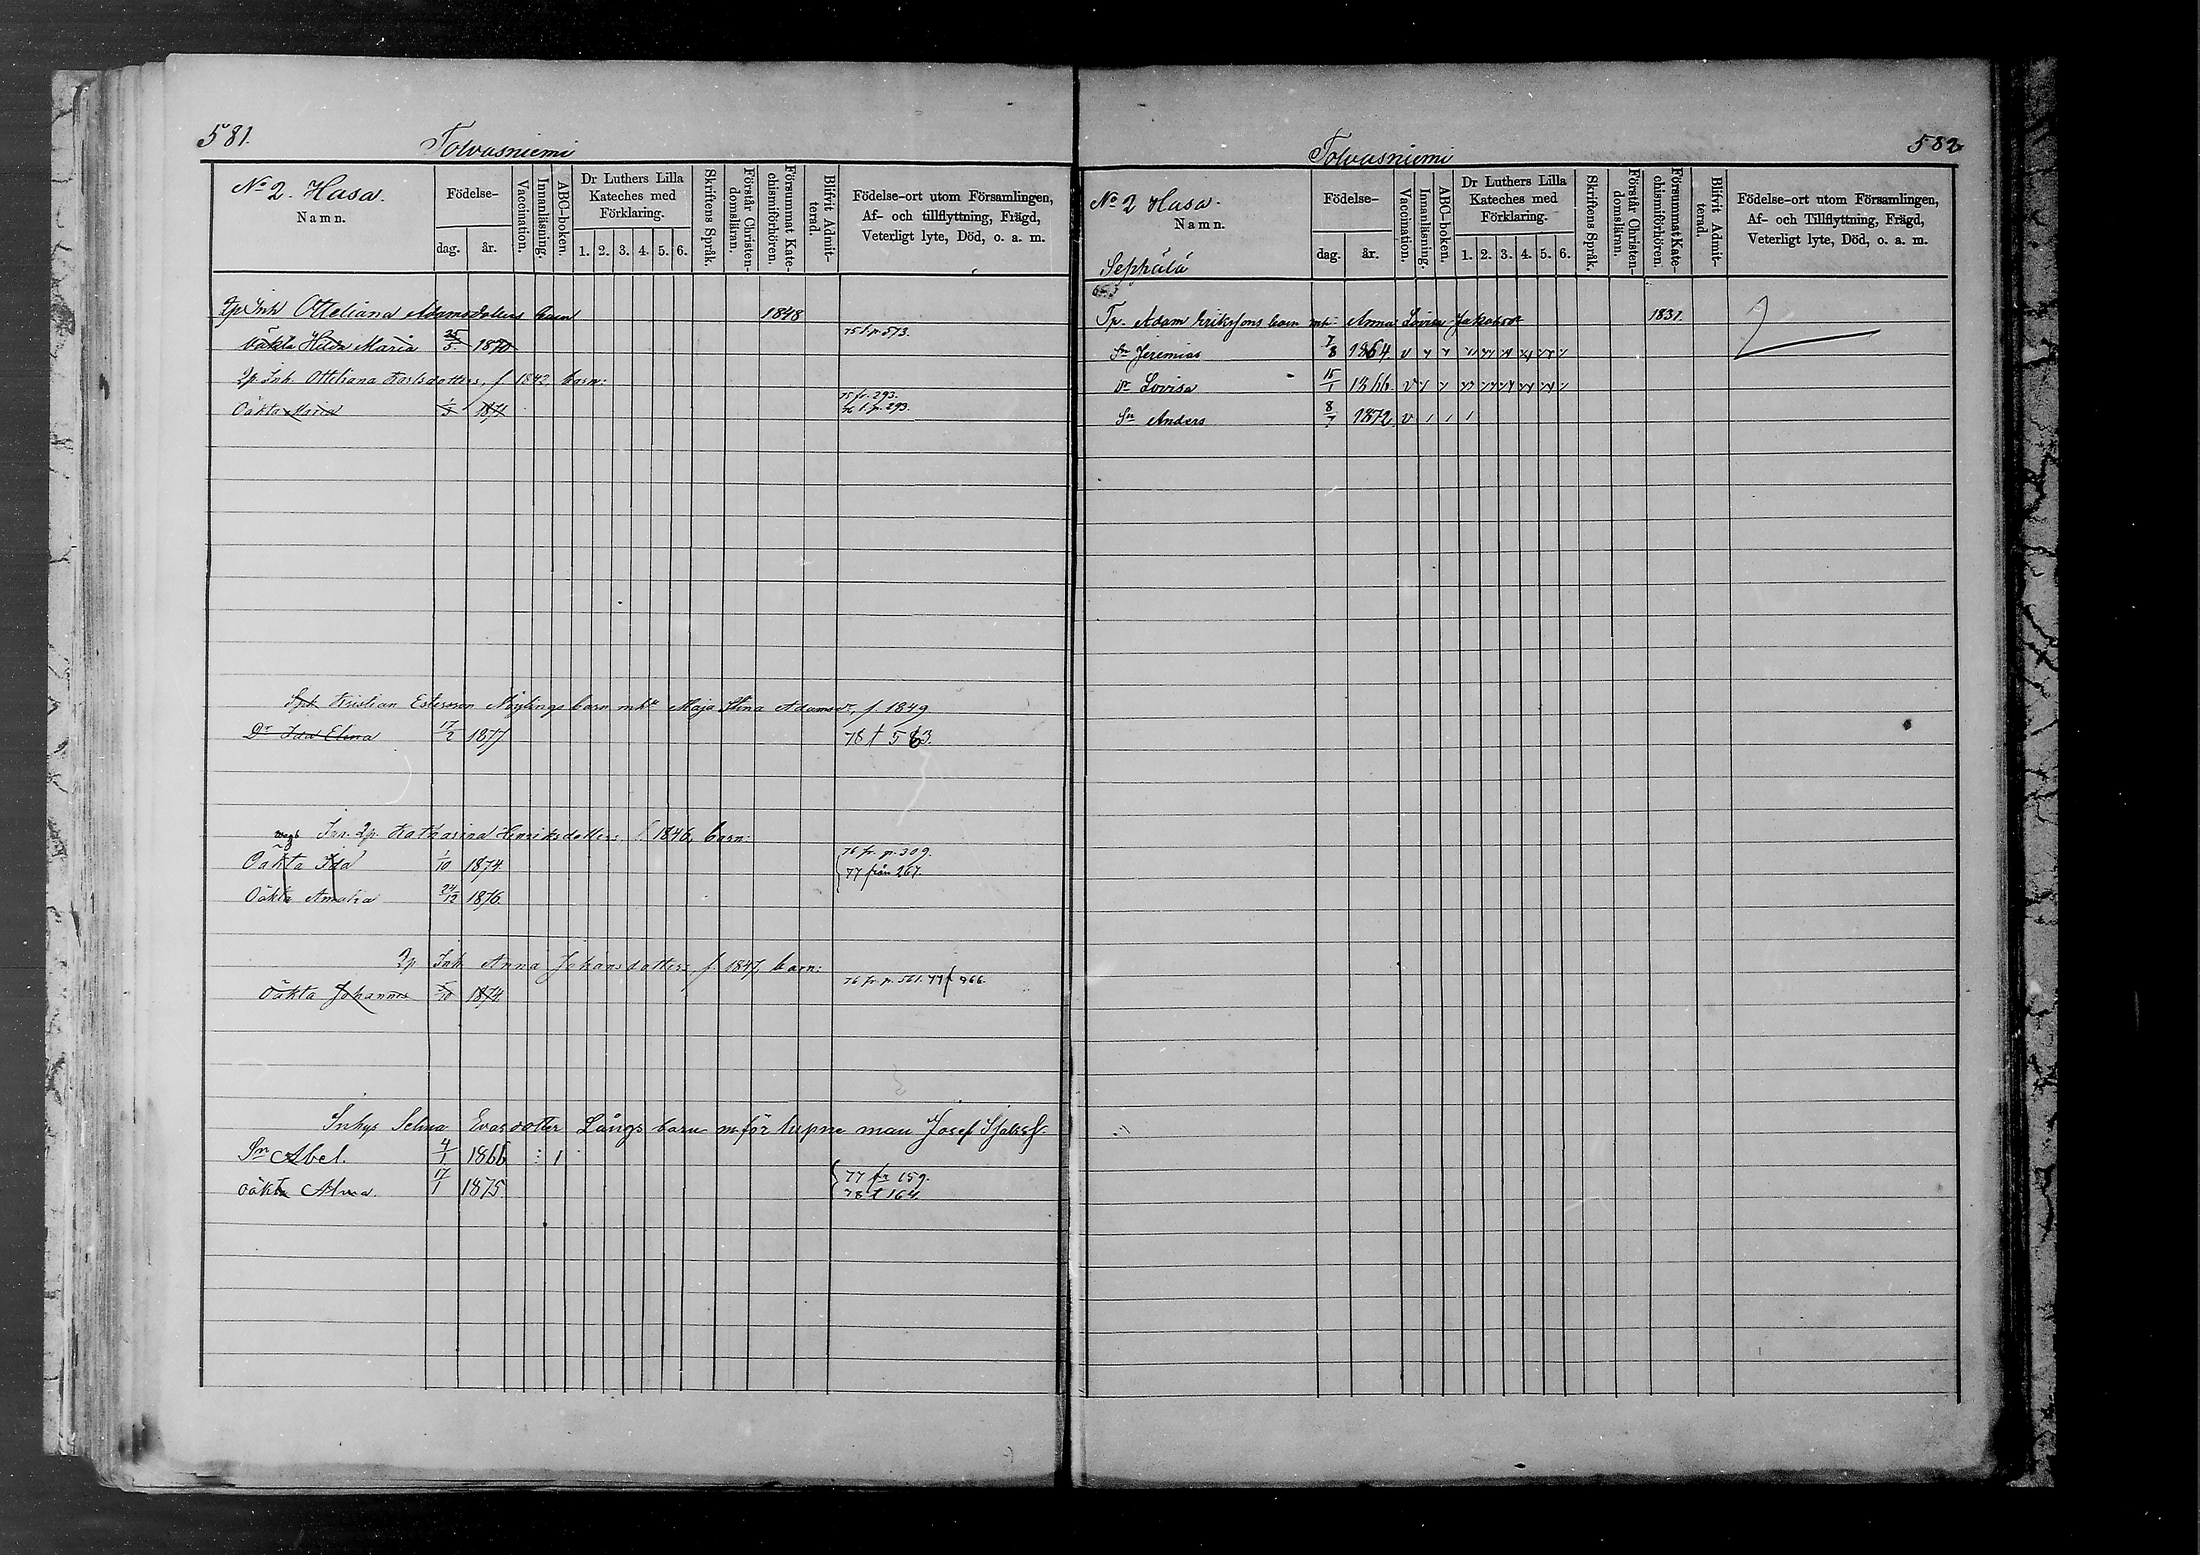 581.
Tolvasniemi
No 2. Hasa.
Namn.
Födelse-
dag. år.
Vaccination.
Innanläsning.
ABC-boken.
Dr Luthers Lilla
Kateches med
Förklaring.
1. 2. 3. 4. 5. 6.
Skriftens Språk.
Förstår Christen-
domsläran.
Försummat Kate-
chismiförhören.
Blifvit Admit-
terad.
Födelse-ort utom Församlingen,
Af- och tillflyttning, Frägd,
Veterligt lyte, Död, o. a. m.
Inh Otteliana Adamsdotters barn 1848
oäkta Hilda Maria 25/5 1870 75 t. p. 573.
Inh. Otteliana Karlsdotters, f 1842 barn:
75 fr. 293.
Oäkta 1874 76 t. p. 293.
Kristian barn Maja Stina Adamsdr, f. 1849.
Dr Ida Elina 17/2 1877 78 t 583.
Katharina Henriksdotters f. 1846, barn:
76 fr. p. 309.
Oäkta Ida 1/10 1874 77 från 267.
Oäkta Amalia 24/12 1876
Inh Anna Johansdotters f. 1847, barn:
76 fr. p. 561. 77 t 966.
Oäkta Johannes 1874
Inhys Selma Långs barn m förlupne man Josef
Sn Abel. 4/1 1866 1
77 fr 159.
oäkta Alma 17/1 1875 78 t 164.
582
Tolvasniemi
No 2 Hasa.
Namn.
Seppälä
Födelse-
dag. år.
Vaccination.
Innanläsning.
ABC-boken.
Dr Luthers Lilla
Kateches med
Förklaring.
1. 2. 3. 4. 5. 6.
Skriftens Språk.
Förstår Christen-
domsläran.
Försummat Kate-
chismiförhören.
Blifvit Admit-
terad.
Födelse-ort utom Församlingen,
Af- och Tillflyttning, Frägd,
Veterligt lyte, Död, o. a. m.
Tp. Adam Erikssons barn mh: Anna Lovisa Jakobsdr 1831.
Sn Jeremias 7/8 1864 v
Dr Lovisa 15/1 1866 v
Sn Anders 8/7 1872 v 1 1 1